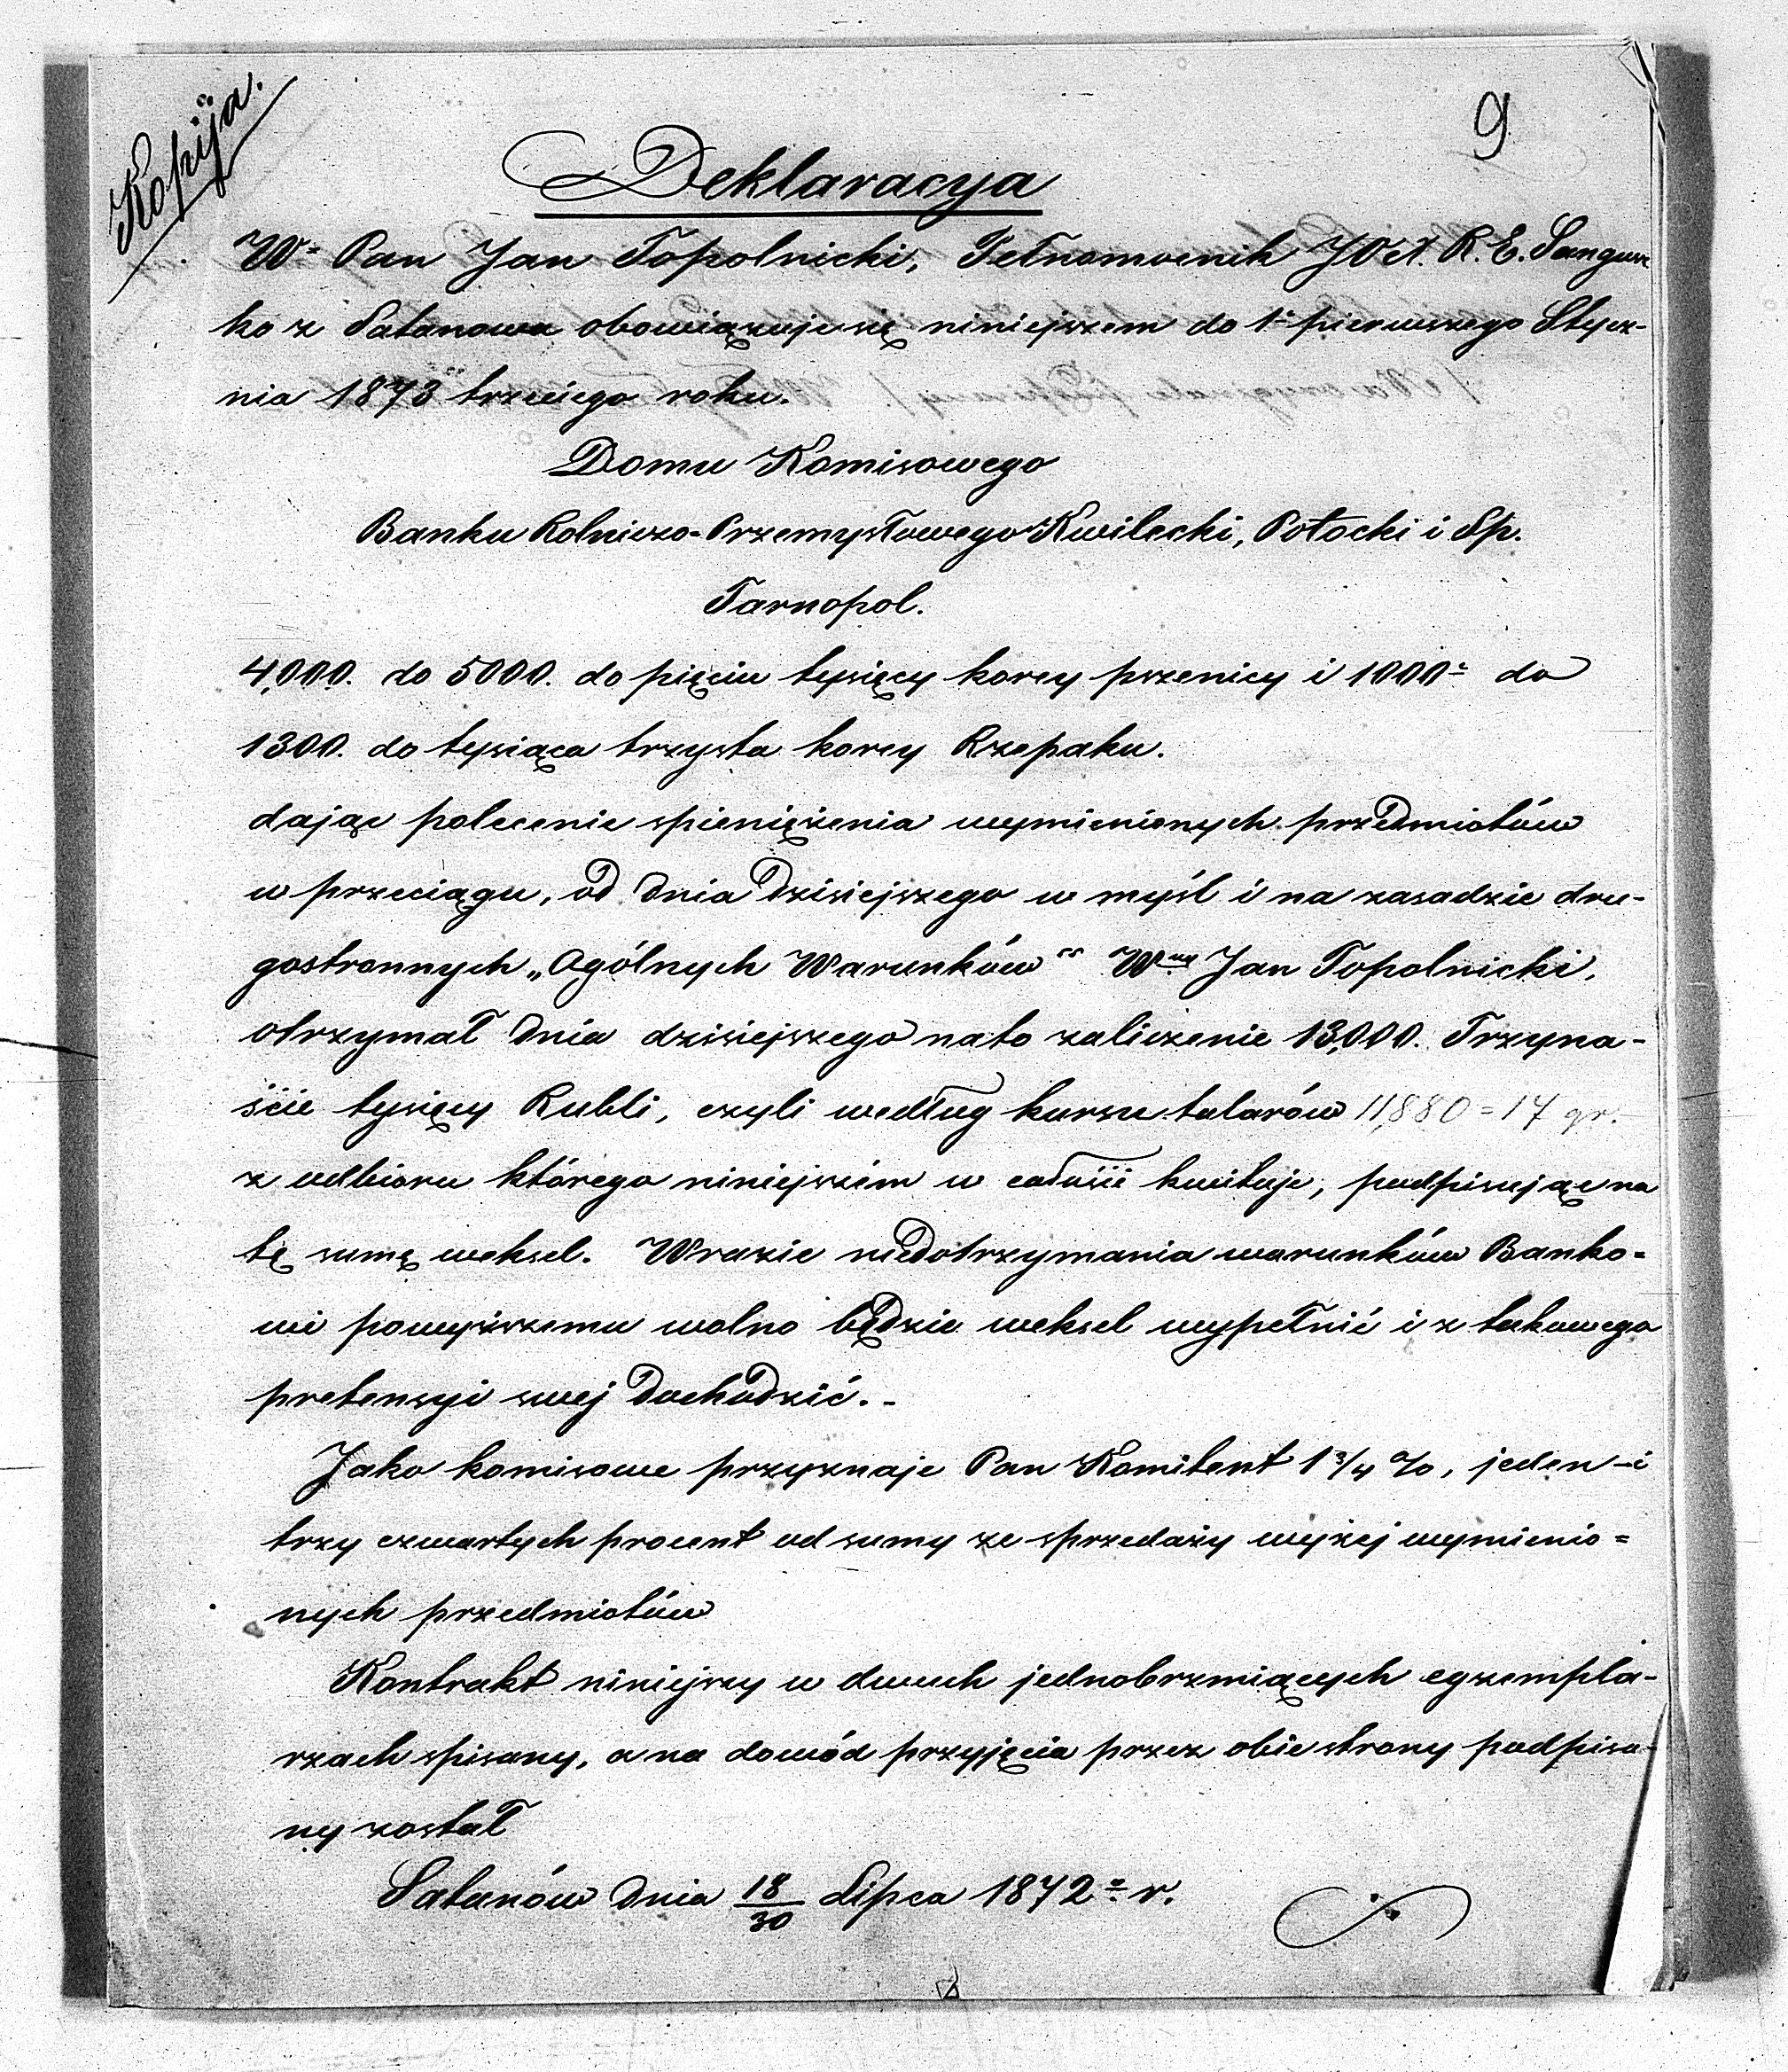 Kopija.
9
Deklaracya
W= Pan Jan Topolnicki, Pełnomocnik JOX. R. E. Sangusz
ko z Satanowa obowiązuje się niniejszem do 1= pierwszego Stycz-
nia 1873 trzeciego roku.
Domu Komisowego
Banku Rolniczo-Przemysłowego Kwilecki, Potocki i Sp.
Tarnopol.
4,000. do 5000. do pięciu tysięcy korcy pszenicy i 1000= do
1300. do tysiąca trzysta korcy Rzepaku.
dając polecenie spieniężenia wymienionych przedmiotów
w przeciągu, od dnia dzisiejszego w myśl i na zasadzie dru-
gostronnych „Ogólnych Warunków" Wny Jan Topolnicki,
otrzymał dnia dzisiejszego nato zaliczenie 13,000. Trzyna-
ście tysięcy Rubli, czyli według kursu talarów 11,880 = 17 gr.
z odbioru którego niniejszém w całości kwituje, podpisując na
tę sumę weksel. Wrazie niedotrzymania warunków Banko=
wi powyższemu wolno będzie weksel wypełnić i z takowego
pretensyi swej dochodzić. -
Jako komisowe przyznaje Pan Komitent 1 3/4 %, jeden i
trzy czwartych procent od sumy ze sprzedaży wyżej wymienio=
nych przedmiotów
Kontrakt niniejszy w dwuch jednobrzmiących egzempla-
rzach spisany, a na dowód przyjęcia przez obie strony podpisa-
ny został
Satanów dnia 18/30 Lipca 1872= r.